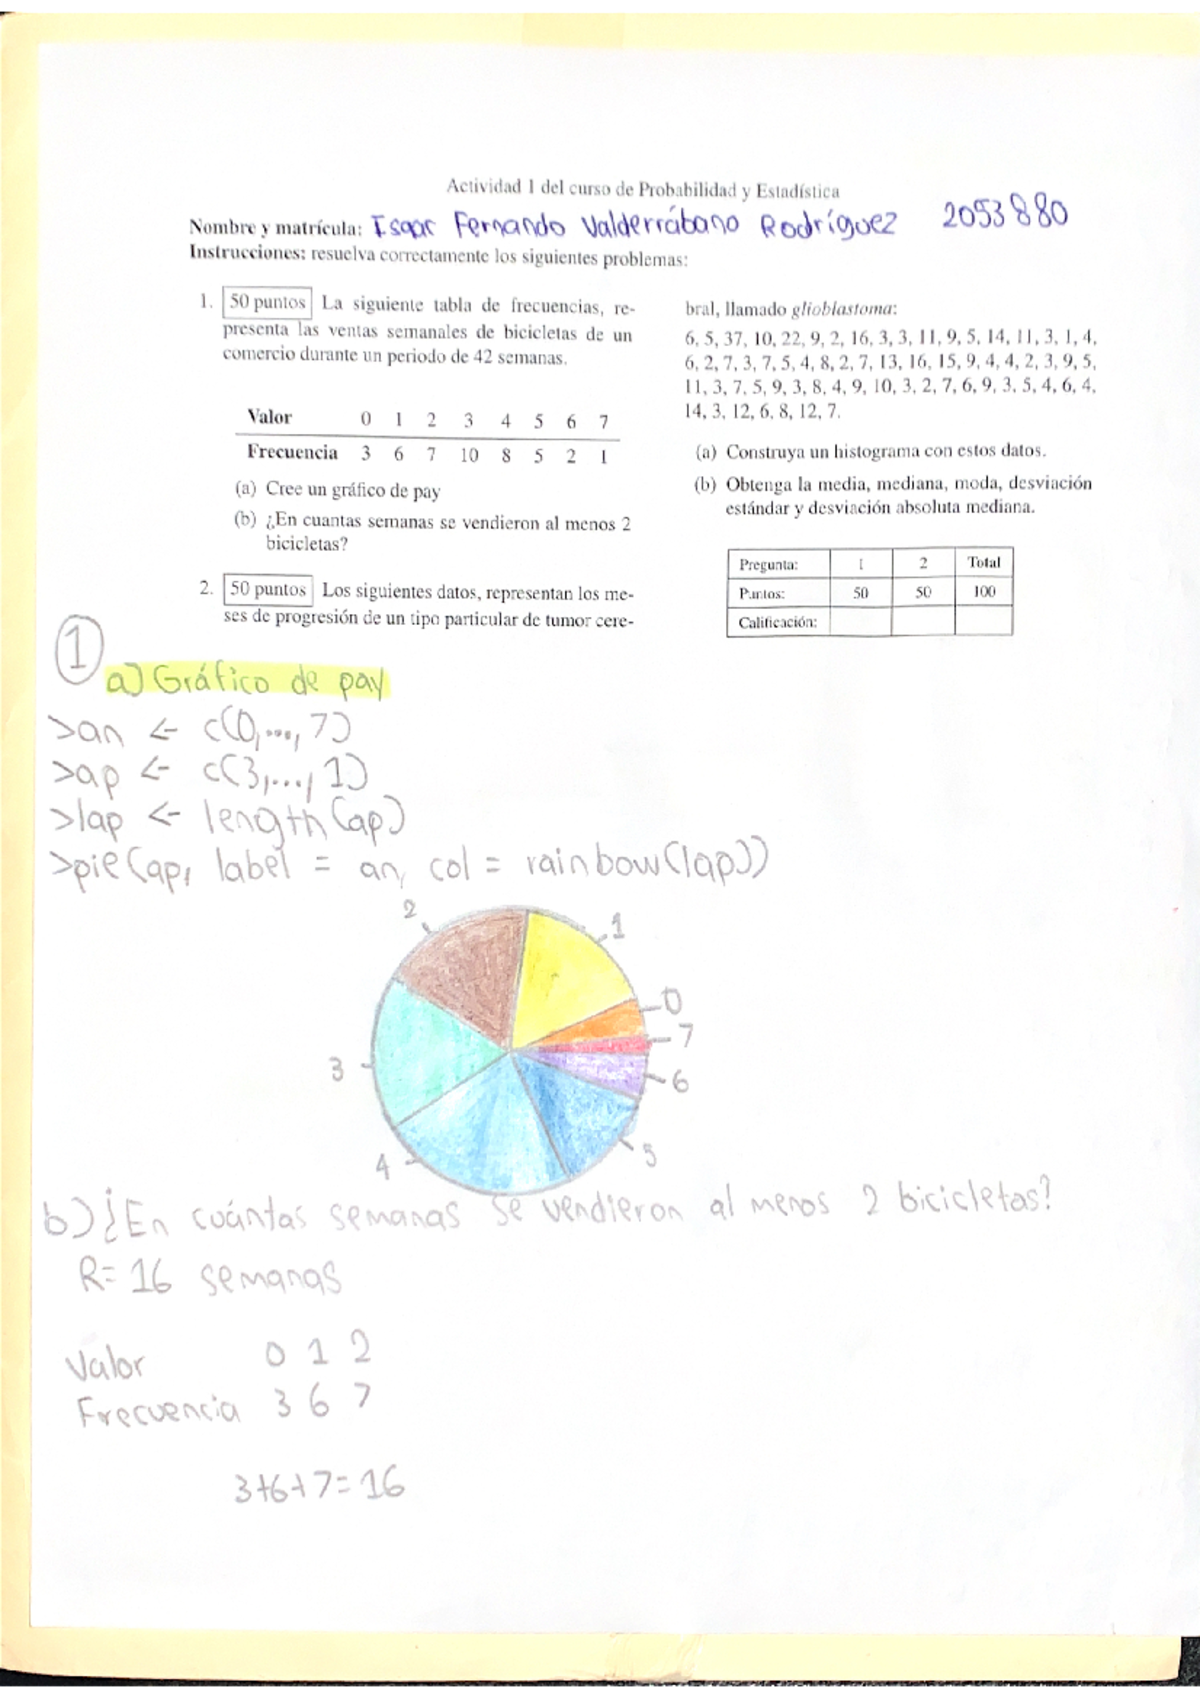 Actividad 1 del curso de Probabilidad y Estadística
Nombre y matrícula: Isaac Fernando Valderrábano Rodríguez 2053880
Instrucciones: resuelva correctamente los siguientes problemas:
1. 50 puntos La siguiente tabla de frecuencias, re-
presenta las ventas semanales de bicicletas de un
comercio durante un periodo de 42 semanas.
Valor 0 1 2 3 4 5 6 7
Frecuencia 3 6 7 10 8 5 2 1
(a) Cree un gráfico de pay
(b) ¿En cuantas semanas se vendieron al menos 2
bicicletas?
2. 50 puntos Los siguientes datos, representan los me-
ses de progresión de un tipo particular de tumor cere-
bral, llamado glioblastoma:
6, 5, 37, 10, 22, 9, 2, 16, 3, 3, 11, 9, 5, 14, 11, 3, 1, 4,
6, 2, 7, 3, 7, 5, 4, 8, 2, 7, 13, 16, 15, 9, 4, 4, 2, 3, 9, 5,
11, 3, 7, 5, 9, 3, 8, 4, 9, 10, 3, 2, 7, 6, 9, 3, 5, 4, 6, 4,
14, 3, 12, 6, 8, 12, 7.
(a) Construya un histograma con estos datos.
(b) Obtenga la media, mediana, moda, desviación
estándar y desviación absoluta mediana.
Pregunta: 1 2 Total
Puntos: 50 50 100
Calificación:
1
a) Gráfico de pay
>an <- c(0,...,7)
>ap <- c(3,...,1)
>lap <- length(ap)
>pie(ap, label = an, col = rainbow(lap))
2
1
0
7
3
6
5
4
b) ¿En cuántas semanas se vendieron al menos 2 bicicletas?
R= 16 semanas
Valor 0 1 2
Frecuencia 3 6 7
3+6+7=16